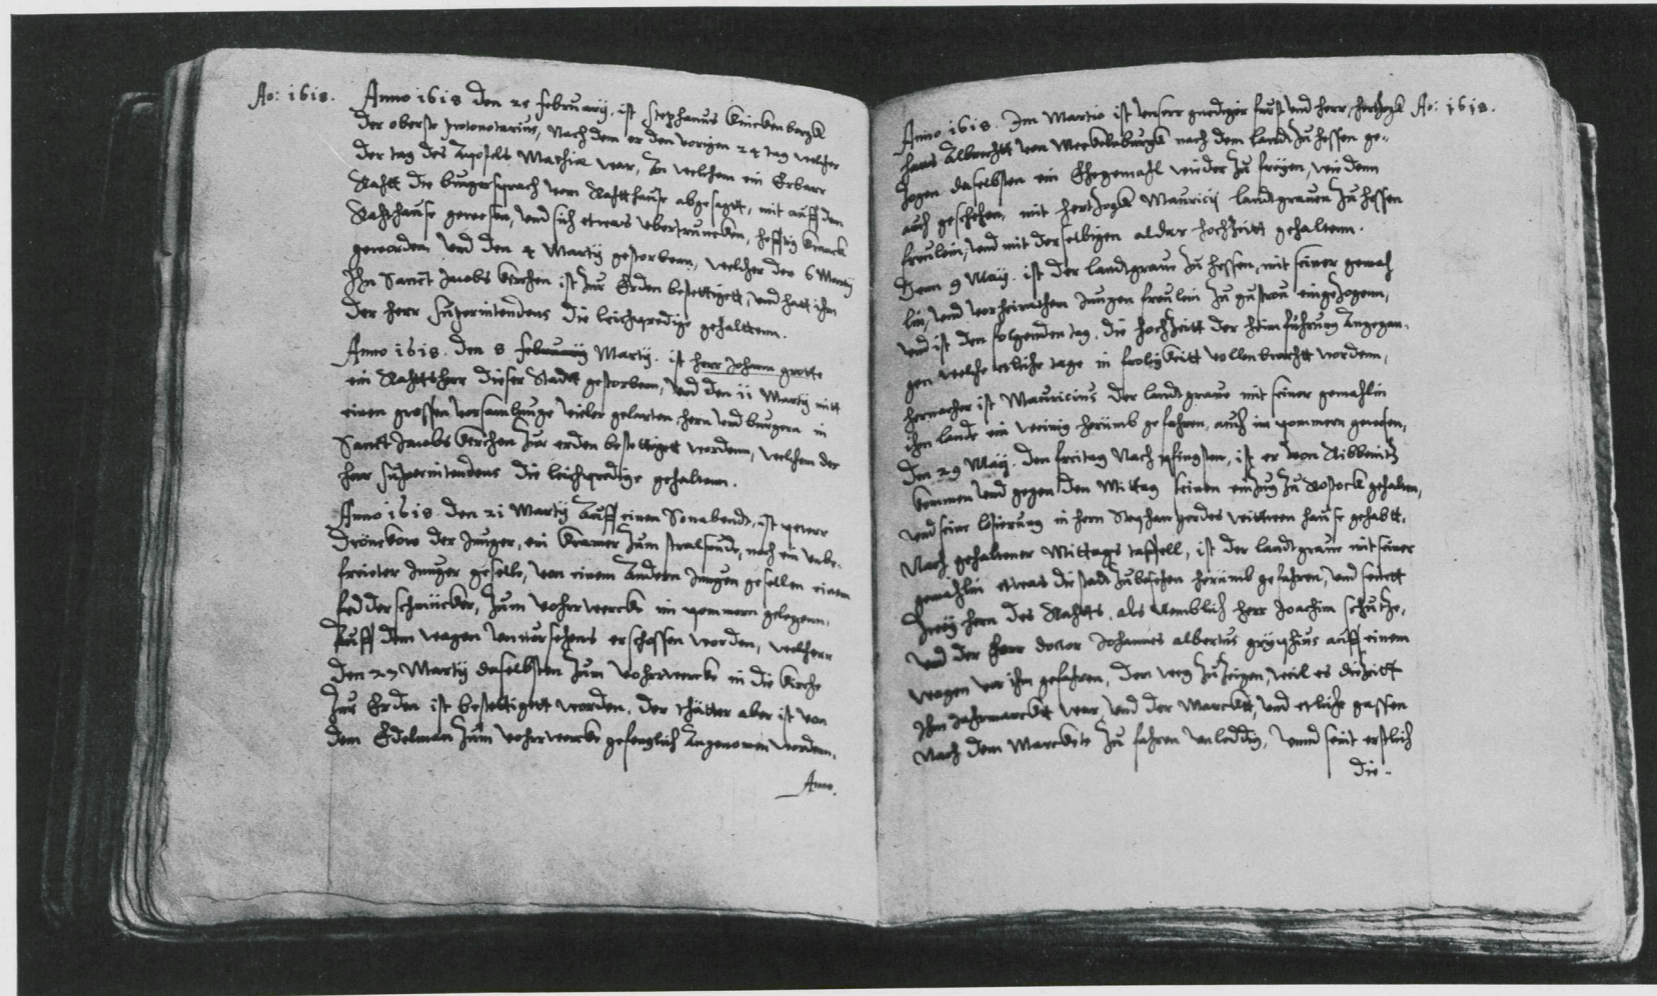 Ao: 1618.
Anno 1618 den 25 februarij. ist Stephanus
der oberste protonotarius, Nach dem er den vorigen 24 tag welcher
der tag des Apostels Mathiæ war, An welchem ein Erbarr
Rahtt die bursprach vom Rahtthause abgesagtt, mit auff dem
Rahthause gewesen, und sich etwas ubertruncken, hefftig kranck
geworden und den 4 Martij gestorbenn, welcher den 6 Martij
Ihn Sanct Jacobs kirchen ist zur Erden bestettigett, und hatt ihm
der herr Superintendens die leichpredige gehalttenn.
Anno 1618. den 8 februarij Martij. ist herr Johann grotte
ein Rahttsherr dieser Stadtt gestorbenn, und den 11 Martij mitt
einer grossen vorsamlunge vieler gelarten hern und burgern in
Sanctt Jacobs kerchen zur erden bestettigett wordenn, welchem der
herr Superintendens die leichpredige gehaltenn.
Anno 1618. den 21 Martij Auff einen Sonabendt, ist peterr
der Junger, ein kramer zum stralsunde, noch ein unbe-
freieter Junger geselle, von einem Andern Jungen gesellen einem
fedderschmücker, zum vohrwercke im pommern gelegenn,
Auff dem wagen unvorsehens erschossen worden, welcherr
den 23 Martij daselbsten zum vohrwercke in die kirche
zur Erden ist bestettigett worden, der thätter aber ist von
dem Edelman zum vohrwercke gefenglich Angenomen wordenn.
Anno.
Ao: 1618.
Anno 1618. Im Martio ist unserr gnediger furst und herr, hertzogk
hans Albrechtt von Meckelnburgk nach dem landt zu hessen ge-
zogen daselbsten ein Ehegemahl wieder zu freyen, wie denn
auch geschehen, mit hertzogk Mauricij landtgrauen zu hessen
freulein, und mit derselbigen aldar hochzeitt gehaltenn.
Denn 9 Maij. ist der landtgraue zu hessen, mit seiner gemah
lin, und vorheirathen Jungen freulein zu gustrou eingezogenn,
und ist den folgenden tag, die hochzeitt der heimfuhrung Angegan-
gen welche etliche tage in frolickeitt vollenbrachtt wordenn,
hernacher ist Mauricius der landtgraue mit seiner gemahlin
ihm lande ein wenig herümb gefahren, auch im pommern gewesen,
den 29 Maij. den freitag Nach pfingsten, ist er von Ribbenitz
kommen und gegen den Mittag seinen einzug zu Rostock gehalten,
und seine losierung in hern Stephan gerdes wittwen hause gehabtt,
Nach gehaltener Mittags taffell, ist der landtgraue mit seiner
gemahlin etwas die stadt zu besehen herümb gefahren, und seintt
zwey hern des Rahtts, als Nemblich herr Joachim schutze,
und der herr doctor Johannes albertus gryphius auff einem
wagen vor ihm gefahren, den weg zu zeigen, weil es die zeitt
Ihm Jahrmarcktt war, und der Marcktt, und etliche gassen
Nach dem Marckete zu fahren unleddig, unnd seint erstlich
die-